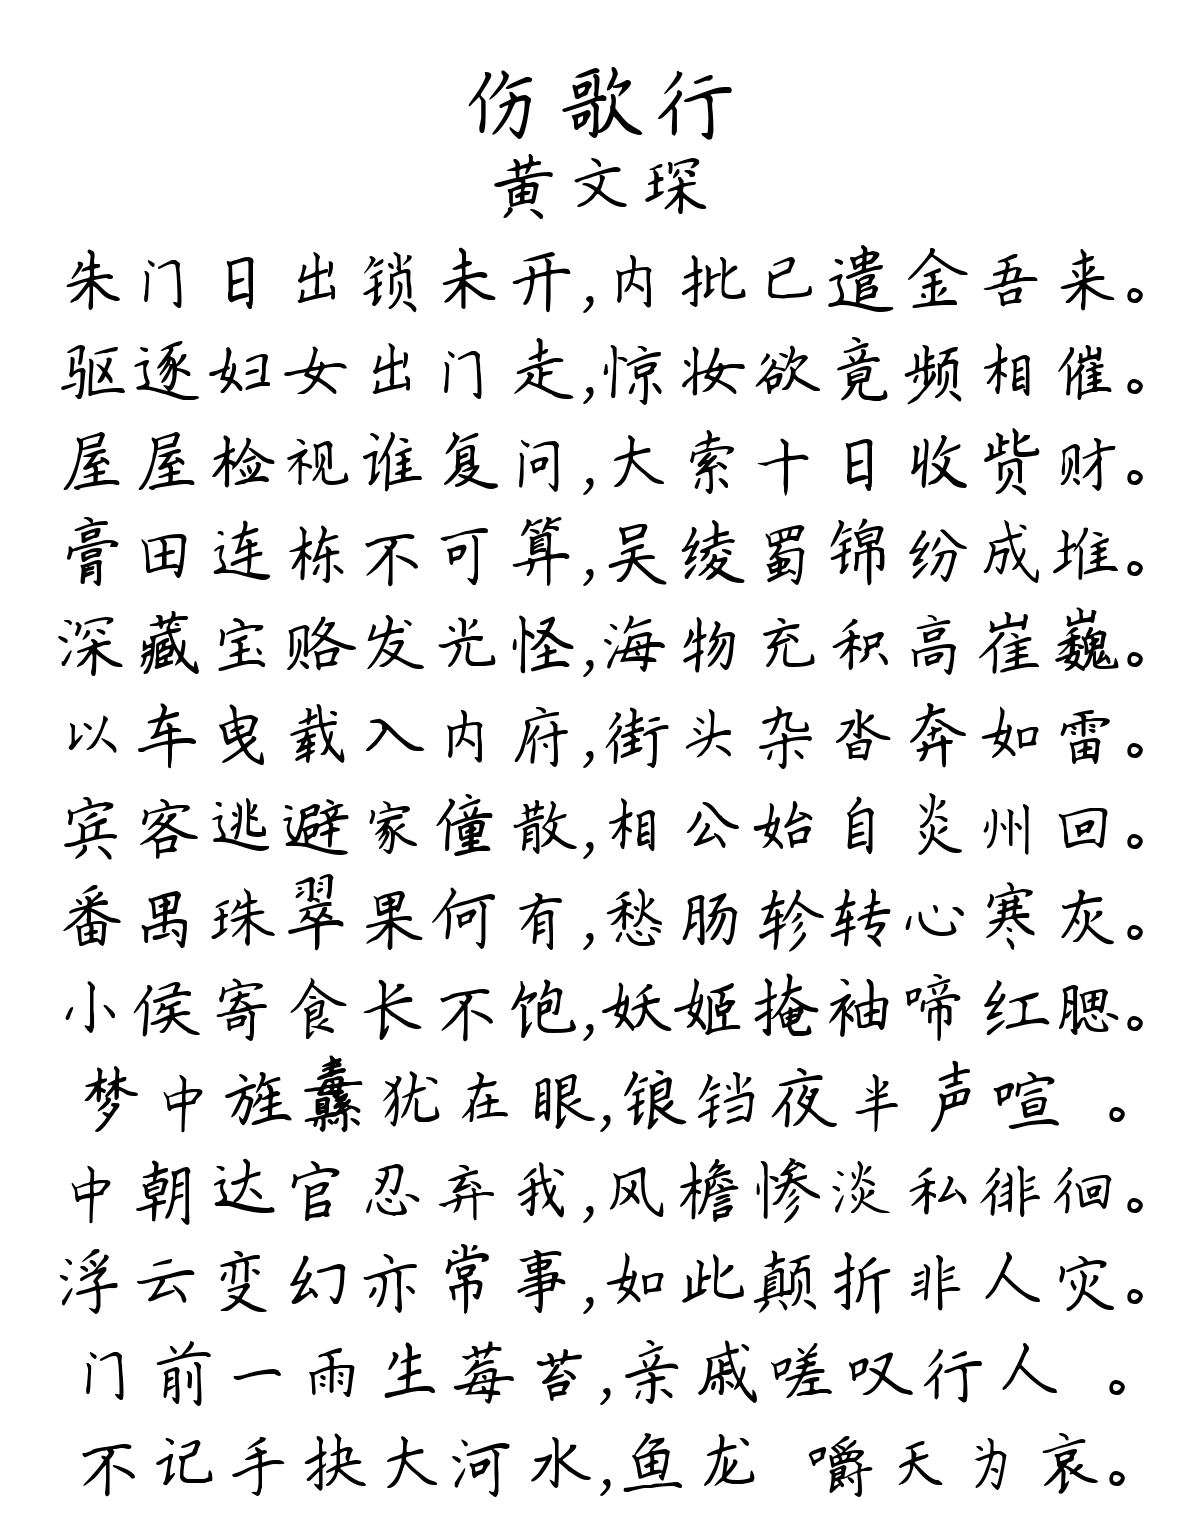 伤歌行
黄文琛
朱门日出锁未开,内批已遣金吾来。
驱逐妇女出门走,惊妆欲竟频相催。
屋屋检视谁复问,大索十日收赀财。
膏田连栋不可算,吴绫蜀锦纷成堆。
深藏宝赂发光怪,海物充积高崔巍。
以车曳载入内府,街头杂沓奔如雷。
宾客逃避家僮散,相公始自炎州回。
番禺珠翠果何有,愁肠轸转心寒灰。
小侯寄食长不饱,妖姬掩袖啼红腮。
梦中旌纛犹在眼,锒铛夜半声喧 。
中朝达官忍弃我,风檐惨淡私徘徊。
浮云变幻亦常事,如此颠折非人灾。
门前一雨生莓苔,亲戚嗟叹行人 。
不记手抉大河水,鱼龙 嚼天为哀。